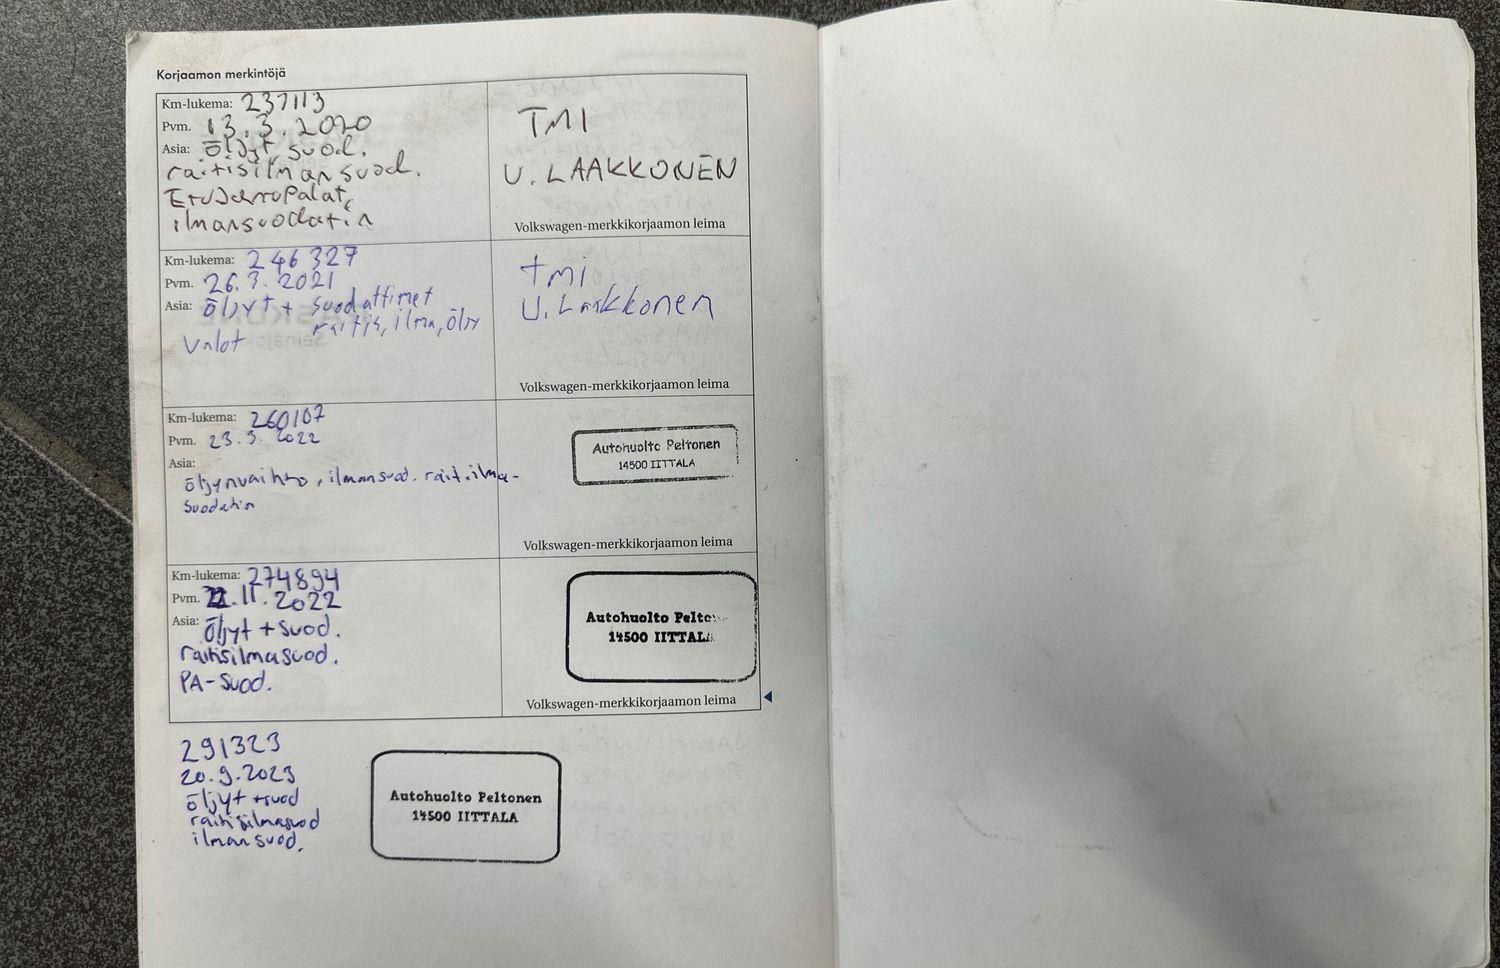 Korjaamon merkintöjä
Km-lukema: 237113
Pvm. 13.3.2020
Asia: öljyt, suod.
raitisilmansuod.
Etujarrupalat,
ilmansuodatin
TMI
U. LAAKKONEN
Volkswagen-merkkikorjaamon leima
Km-lukema: 246327
Pvm. 26.3.2021
Asia: öljyt + suodattimet
raitis, ilma, öljy
Valot
TMI
U. Laakkonen
Volkswagen-merkkikorjaamon leima
Km-lukema: 260107
Pvm. 23.3.2022
Asia:
öljynvaihto, ilmansuod. rait.ilma-
suodatin
Autohuolto Peltonen
14500 IITTALA
Volkswagen-merkkikorjaamon leima
Km-lukema: 274894
Pvm. 22.11.2022
Asia: Öljyt + suod.
raitisilmasuod.
PA-suod.
Autohuolto Pelto
14500 IITTALA
Volkswagen-merkkikorjaamon leima
291323
20.9.2023
öljyt +suod
raitisilmasuod
ilmansuod.
Autohuolto Peltonen
14500 IITTALA